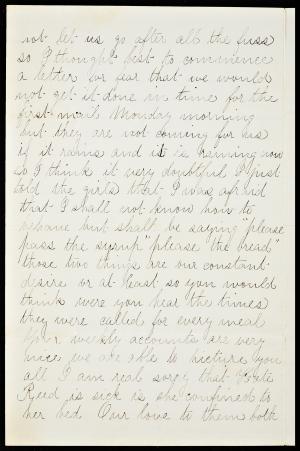 not let us go after all the fuss
so I thought best to commence
a letter for fear that we would
not get it done in time for the
first mail Monday morning
but they are not coming for us
if it rains and it is raining now
so I think it very doubtful I just
told the girls that I was afraid
that I shall not know how to
behave but shall be saying "please
pass the syrup please the bread"
those two things are our constant
desire or at least so you would
think were you hear the times
they were called for every meal
Your weekly accounts are very
nice we are able to picture you
all I am real sorry that Kate
Reed is sick is she confined to
her bed Our love to them both